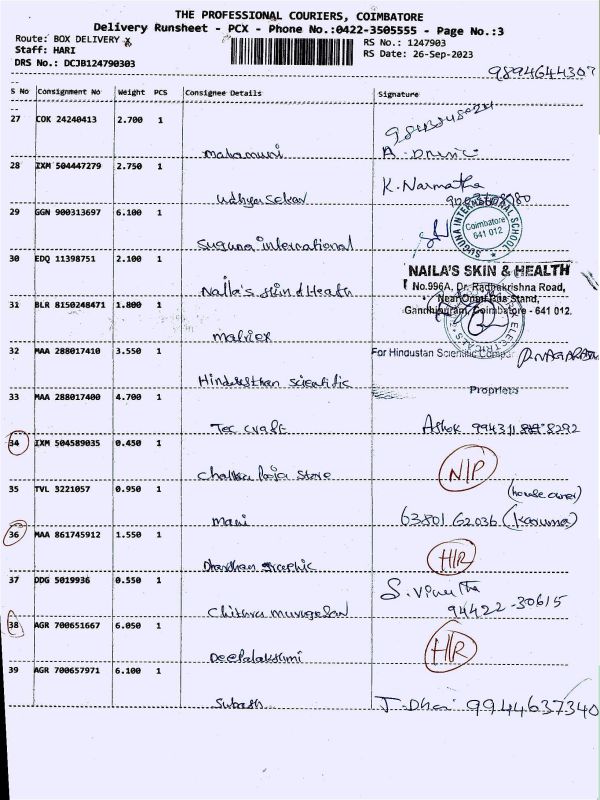 THE PROFESSIONAL COURIERS, COIMBATORE
Delivery Runsheet - PCX - Phone No.:0422-3505555 - Page No.:3
Route: BOX DELIVERY X
RS No.: 1247903
Staff: HARI
RS Date: 26-Sep-2023
DRS No.: DCJB124790303
S No Consignment No Weight PCS Consignee Details Signature
27 COK 24240413 2.700 1
Mahamuni
28 IXM 504447279 2.750 1 K. Narmatha
29 GGN 900313697 6.100 1
SUGUNA INTERNATIONAL SCHOOL
Coimbatore
641 012
Suguna international
30 EDQ 11398751 2.100 1
NAILA'S SKIN & HEALTH
No.996A, Dr. Radhakrishna Road,
Near Omni Bus Stand,
Gandhipuram, Coimbatore - 641 012.
Naila's skin & Health
31 BLR 8150248471 1.800 1
32 MAA 288017410 3.550 1 For Hindustan Scientific
Hindusthan scientific
33 MAA 288017400 4.700 1
Tec craft Ashok
34 IXM 504589035 0.450 1
N/P
35 TVL 3221057 0.950 1 (house owner)
Mani 63801 62036
36 MAA 861745912 1.550 1
H/R
37 DDG 5019936 0.550 1
Chithra murugesan 94422-30615
38 AGR 700651667 6.050 1
Deepalakshmi H/R
39 AGR 700657971 6.100 1
Subash 9944637340